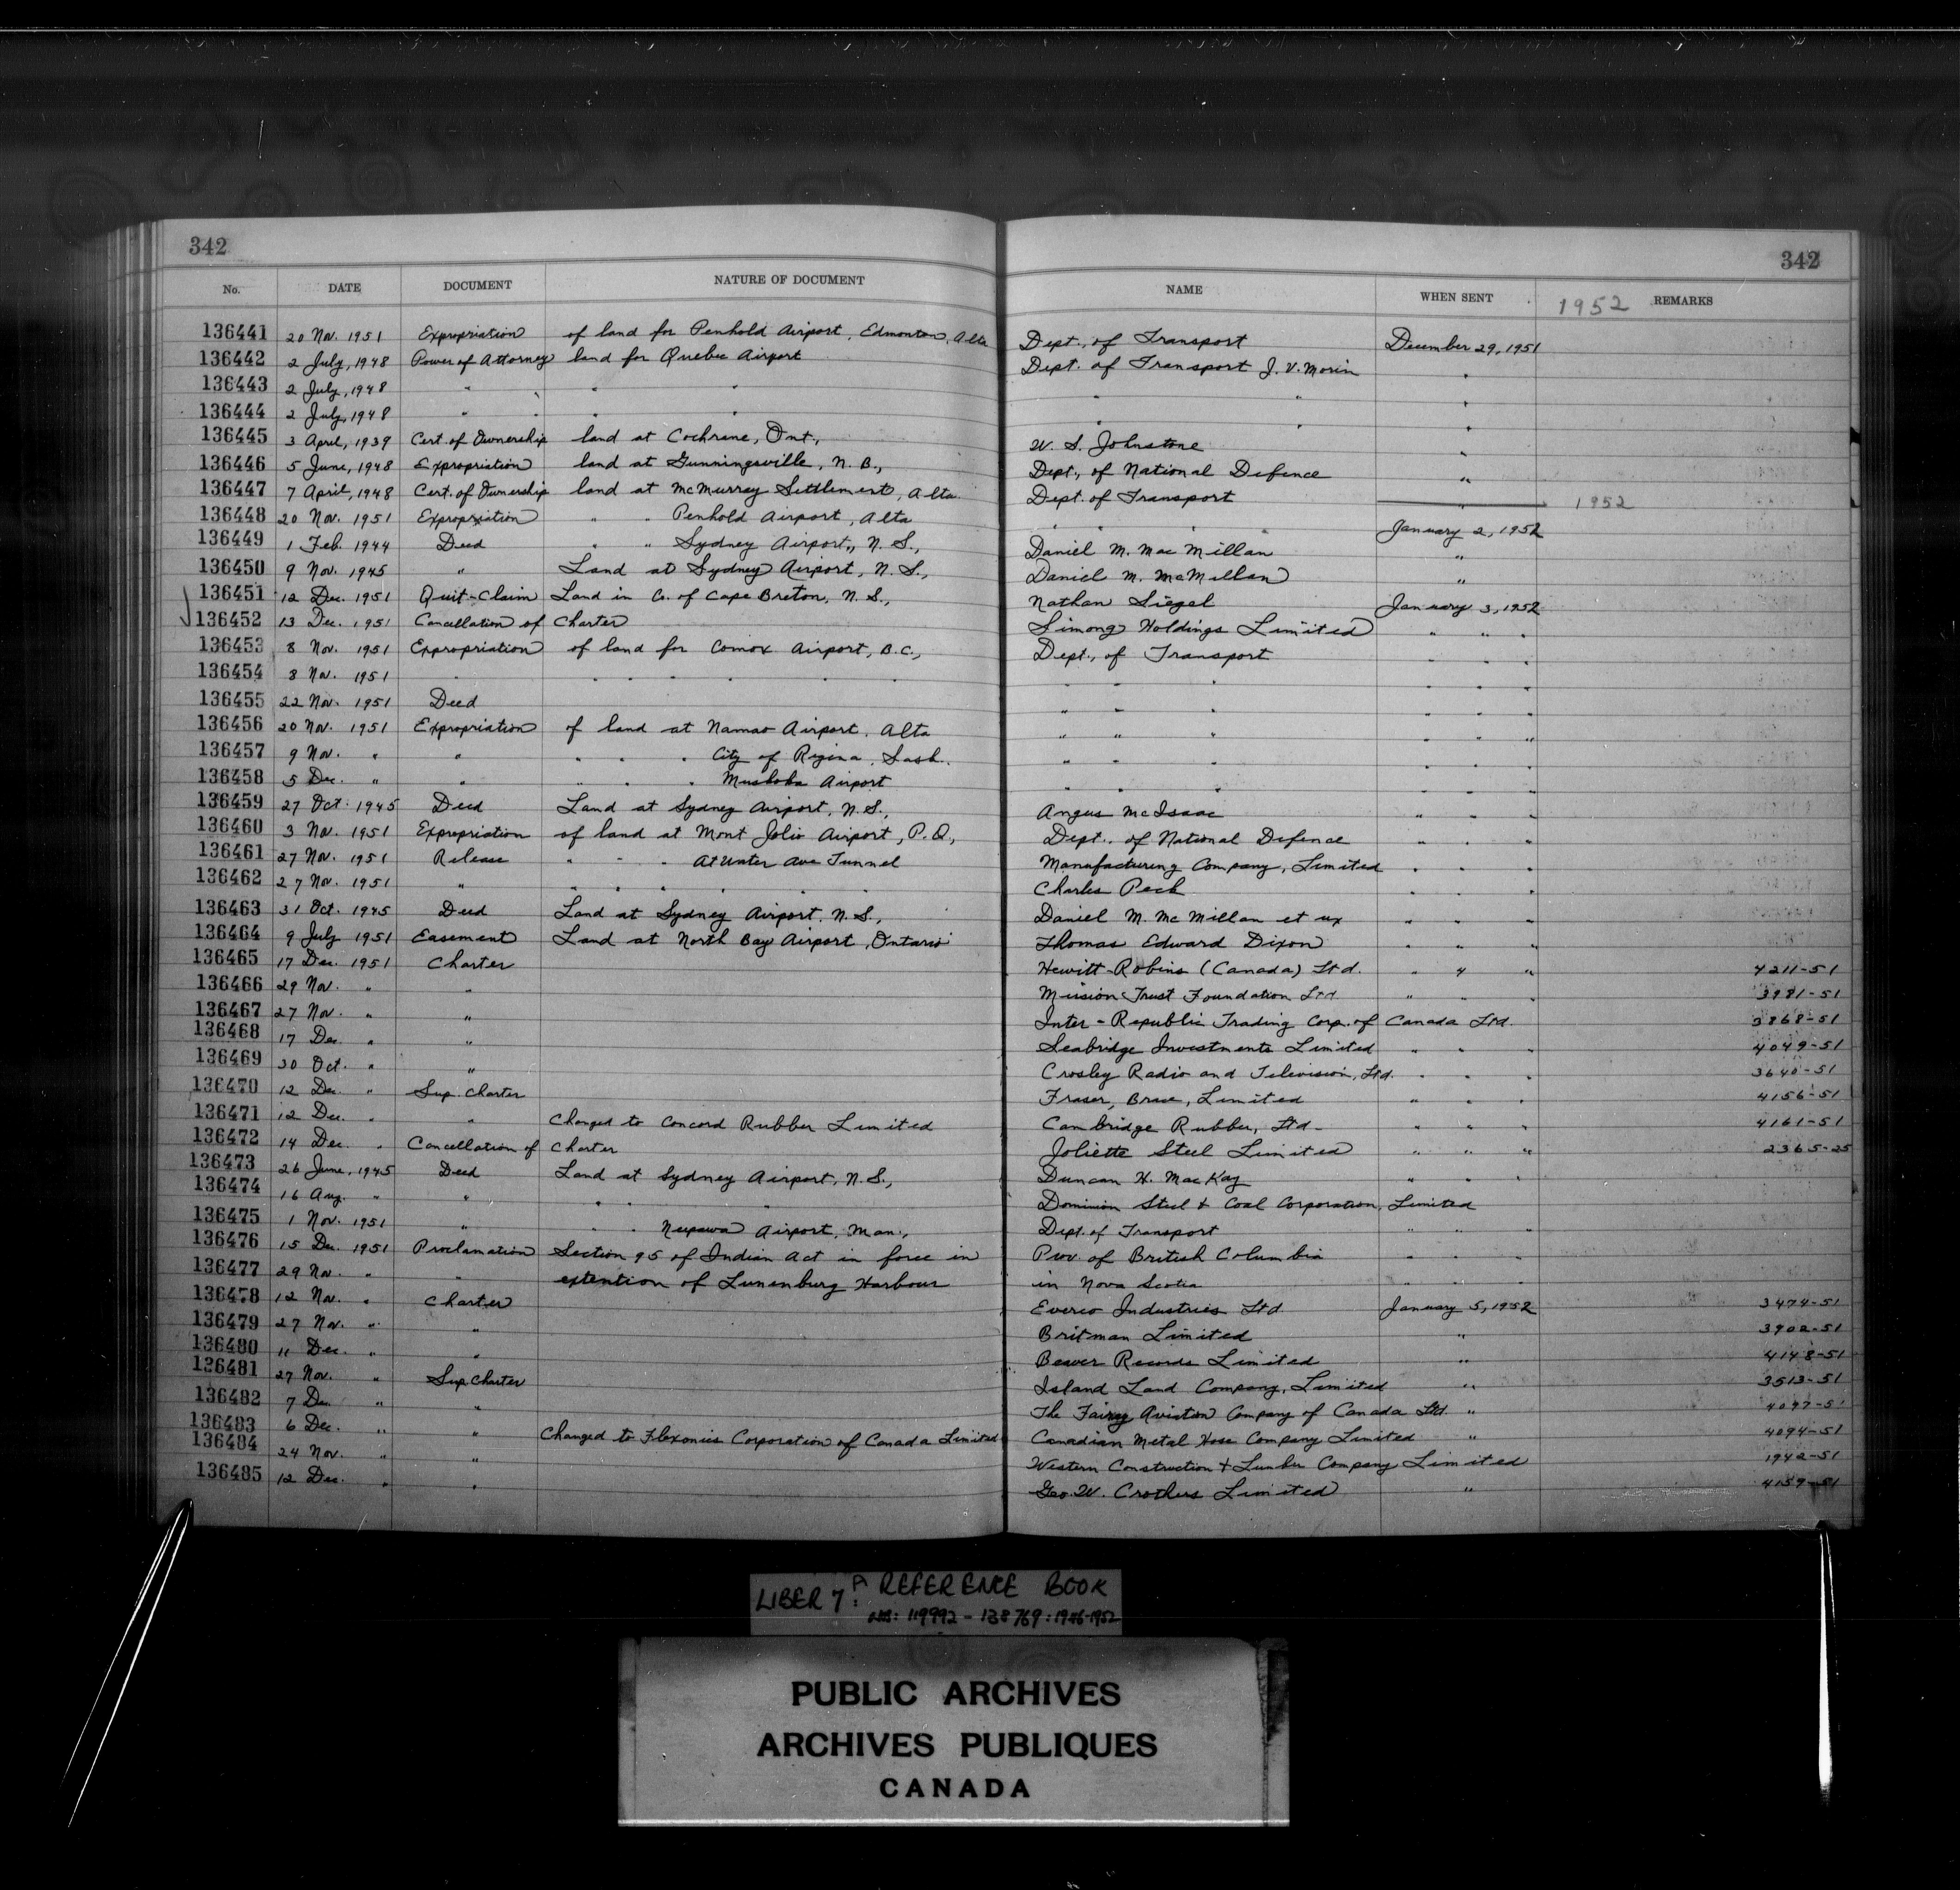 342 342
No. DATE DOCUMENT NATURE OF DOCUMENT NAME WHEN SENT 1952 REMARKS
136441 20 Nov. 1951 Expropriation of land for Penhold Airport, Edmonton, Alta Dept., of Transport December 29, 1951
136442 2 July, 1948 Power of Attorney land for Quebec Airport Dept. of Transport J. V. Morin "
136443 2 July, 1948 " " " " " "
136444 2 July, 1948 " " " " " "
136445 3 April, 1939 Cert. of Ownership land at Cochrane, Ont., W. S. Johnstone "
136446 5 June, 1948 Expropriation land at Gunningsville, N. B., Dept., of National Defence "
136447 7 April, 1948 Cert. of Ownership land at McMurray Settlement, Alta. Dept. of Transport " 1952
136448 20 Nov. 1951 Expropriation " " Penhold Airport, Alta " " " January 2, 1952
136449 1 Feb. 1944 Deed " " Sydney Airport,, N. S., Daniel M. MacMillan "
136450 9 Nov. 1945 " Land at Sydney Airport, N. S., Daniel M. McMillan "
136451 12 Dec. 1951 Quit-Claim Land in Co. of Cape Breton, N. S., Nathan Siegel January 3, 1952
136452 13 Dec. 1951 Cancellation of Charter Simong Holdings Limited " " "
136453 8 Nov. 1951 Expropriation of land for Comox Airport, B.C., Dept., of Transport " " "
136454 8 Nov. 1951 " " " " " " " " " " " "
136455 22 Nov. 1951 Deed " " " " " "
136456 20 Nov. 1951 Expropriation of land at Namao Airport, Alta " " " " " "
136457 9 Nov. " " " " " City of Regina, Sask. " " " " " "
136458 5 Dec. " " " " " Muskoka Airport " " " " " "
136459 27 Oct. 1945 Deed Land at Sydney Airport, N. S., Angus McIsaac " " "
136460 3 Nov. 1951 Expropriation of land at Mont Jolie Airport, P. Q., Dept., of National Defence " " "
136461 27 Nov. 1951 Release " " " Atwater Ave Tunnel Manufacturing Company, Limited " " "
136462 27 Nov. 1951 " " " " " " Charles Peck " " "
136463 31 Oct. 1945 Deed Land at Sydney Airport, N. S., Daniel M. McMillan et ux " " "
136464 9 July 1951 Easement Land at North Bay Airport, Ontario Thomas Edward Dixon " " "
136465 17 Dec. 1951 Charter Hewitt-Robins (Canada) Ltd. " 4 " 4211-51
136466 29 Nov. " " Mission Trust Foundation Ltd " " " 3981-51
136467 27 Nov. " " Inter-Republic Trading Corp. of Canada Ltd. 3868-51
136468 17 Dec. " " Seabridge Investments Limited " " " 4049-51
136469 30 Oct. " " Crosley Radio and Television, Ltd. " " " 3640-51
136470 12 Dec. " Sup. Charter Fraser, Brace, Limited " " " 4156-51
136471 12 Dec. " " Changed to Concord Rubber Limited Cambridge Rubber, Ltd- " " " 4161-51
136472 14 Dec. " Cancellation of Charter Joliette Steel Limited " " " 2365-25
136473 26 June, 1945 Deed Land at Sydney Airport, N. S., Duncan H. MacKay " " "
136474 16 Aug. " " " " " Dominion Steel & Coal Corporation, Limited
136475 1 Nov. 1951 " " " Neepawa Airport, Man., Dept. of Transport " " "
136476 15 Dec. 1951 Proclamation Section 95 of Indian Act in force in Prov. of British Columbia " " "
136477 29 Nov. " " extention of Lunenburg Harbour in Nova Scotia " " "
136478 12 Nov. " Charter Everco Industries Ltd January 5, 1952 3474-51
136479 27 Nov. " " Britman Limited " 3902-51
136480 11 Dec. " " Beaver Records Limited " 4148-51
136481 27 Nov. " Sup Charter Island Land Company, Limited " 3513-51
136482 7 Dec. " " The Fairey Aviation Company of Canada Ltd. " 4097-51
136483 6 Dec. " " Changed to Flexonics Corporation of Canada Limited Canadian Metal Hose Company Limited " 4094-51
136484 24 Nov. " " Western Construction & Lumber Company Limited 1942-51
136485 12 Dec. " " Geo. W. Crothers Limited " 4159-51
LIBER 7A: REFERENCE BOOK
NOS: 119992 - 138769: 1946-1952
PUBLIC ARCHIVES
ARCHIVES PUBLIQUES
CANADA